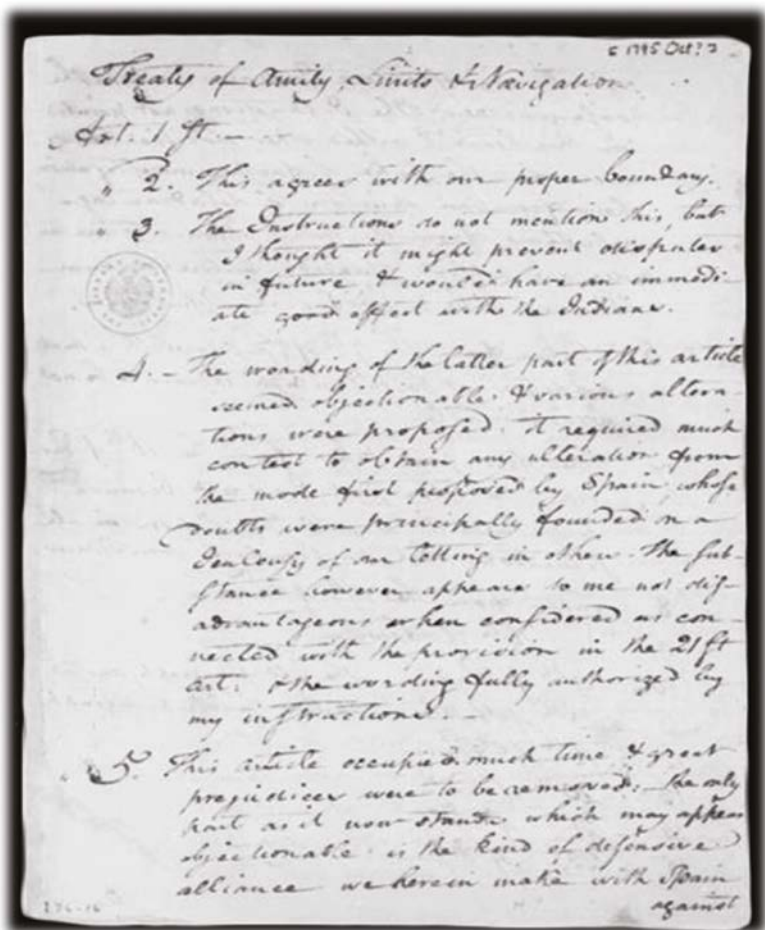 c 1795 Oct? ?
Treaty of Amity, Limits & Navigation
Art. 1 st. —
" 2. This agrees with our proper boundary.
" 3. The Instructions do not mention this, but
I thought it might prevent disputes
in future & would have an immedi-
ate good effect with the Indians.
4. - The wording of the latter part of this article
seemed objectionable & various altera-
tions were proposed. it required much
contest to obtain any alteration from
the mode first proposed by Spain, whose
doubts were principally founded on a
Jealousy of our letting in others. the sub-
stance however appears to me not dis-
advantageous when considered as con-
nected with the provision in the 21st
art. & the wording fully authorized by
my instructions. —
5. This article occupied much time & great
prejudices were to be removed; the only
part as it now stands which may appear
objectionable is the kind of defensive
alliance we herein make with Spain
against